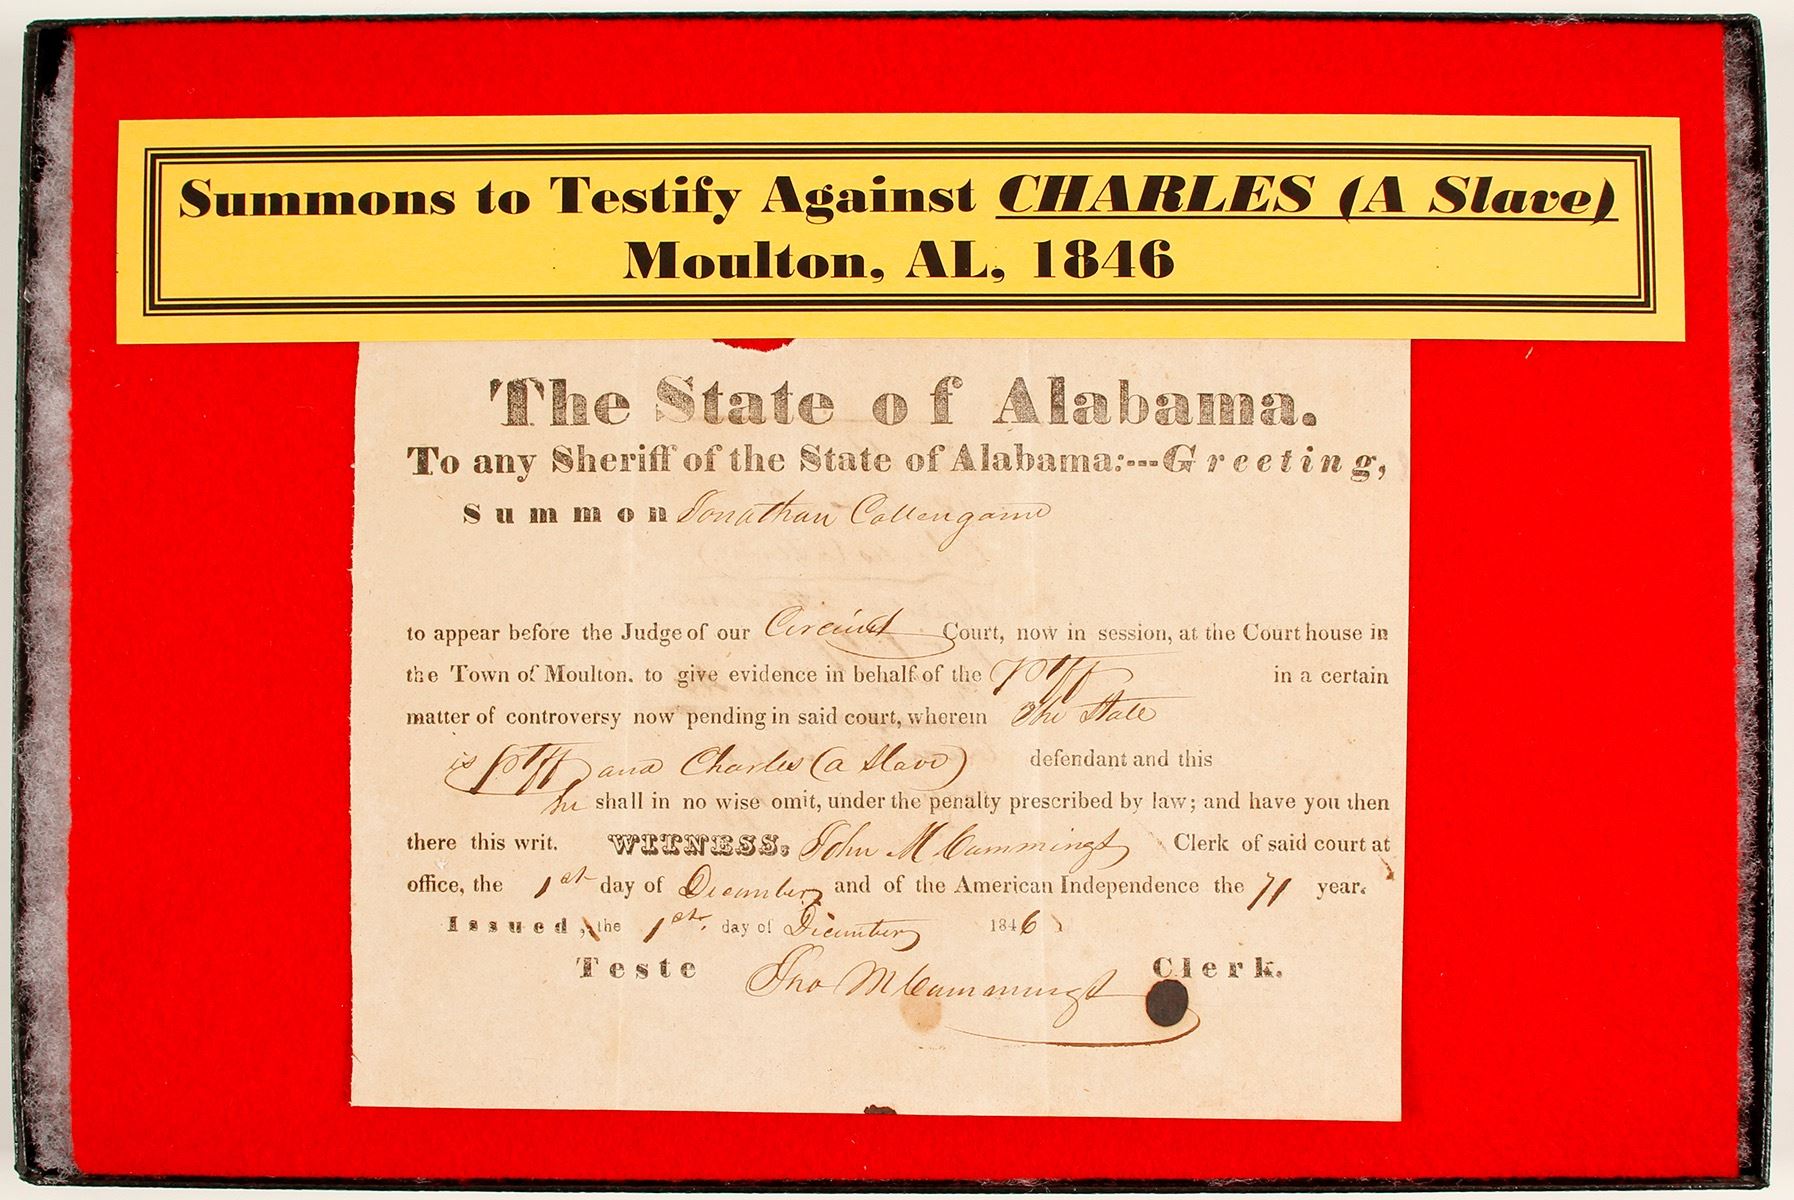 Summons to Testify Against CHARLES (A Slave)
Moulton, AL, 1846
The State of Alabama.
To any Sheriff of the State of Alabama:---Greeting,
Summon Jonathan Callengame
to appear before the Judge of our Circuit Court, now in session, at the Court house in
the Town of Moulton. to give evidence in behalf of the Ptff in a certain
matter of controversy now pending in said court, wherein The State
is Ptff and Charles (a Slave) defendant and this
he shall in no wise omit, under the penalty prescribed by law; and have you then
there this writ. WITNESS, John M Cummings Clerk of said court at
office, the 1st day of December and of the American Independence the 71 year.
Issued, the 1st. day of December 1846
Teste Jno M Cummings Clerk.